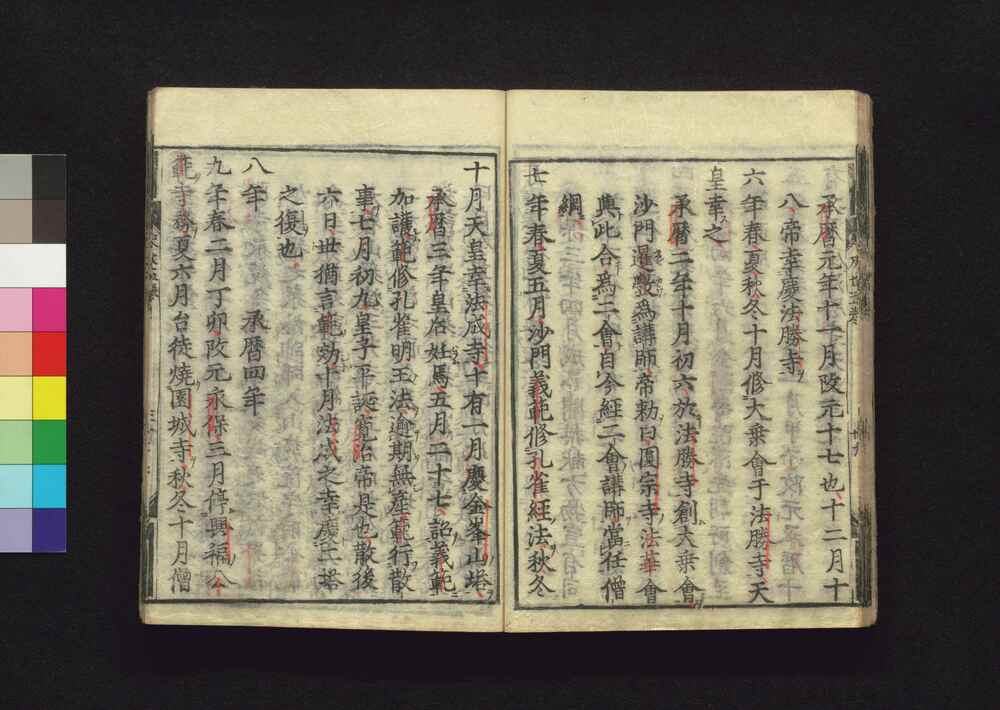 承曆元年十一月改元十七也十二月十
八帝幸慶法勝寺
六年春夏秋冬十月修大乘會于法勝寺天
皇幸之
承曆二年十月初六於法勝寺創大乘會
沙門暹斅爲講師帝勅曰圓宗寺法華會
與此合爲二會自今經二會講師當任僧
綱
七年春夏五月沙門義範修孔雀經法秋冬
十月天皇幸法成寺十有一月慶金峯山塔
承曆三年皇后妊焉五月二十七詔義範
加護範修孔雀明王法逾期無産範行散
事七月初九皇子平誕寬治帝是也散後
六日世猶言範効十月法成之幸慶二塔
之復也
八年 承曆四年
九年春二月丁卯改元永保三月停興福
寺務夏六月台徒燒園城寺秋冬十月僧